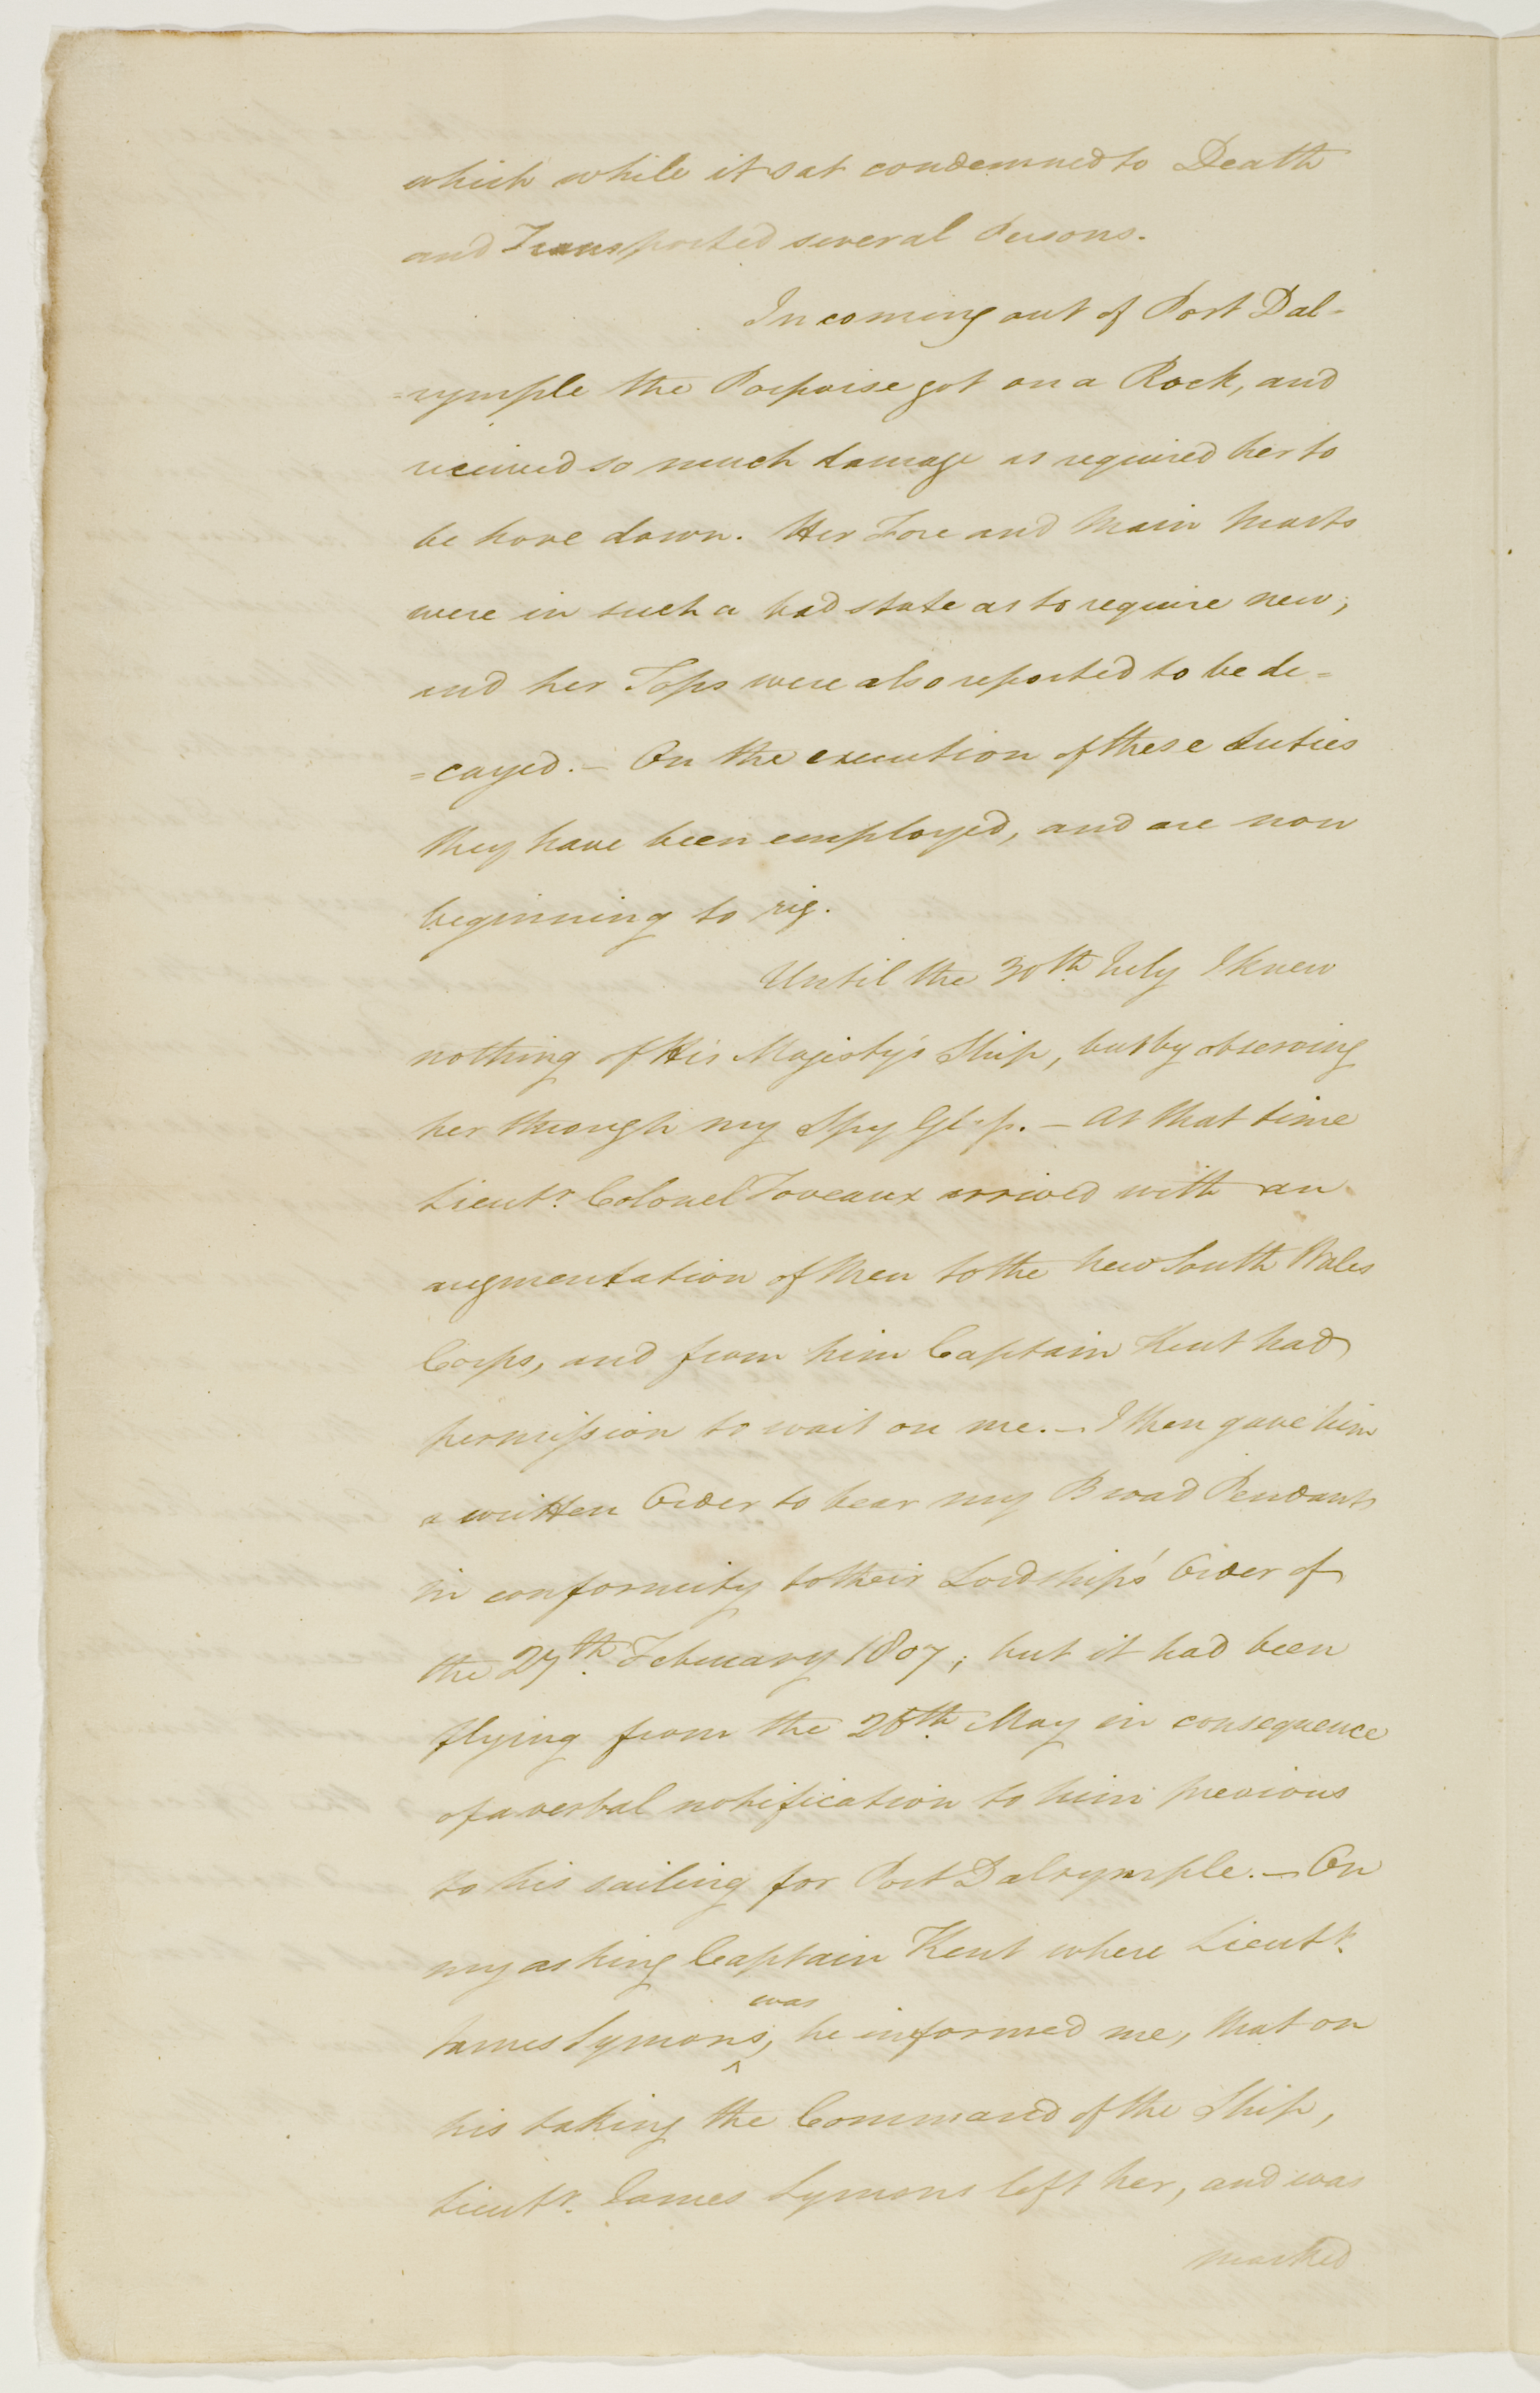 which while it sat condemned to Death
and Transported several Persons.
In coming out of Port Dal-
=rymple the Porpoise got on a Rock, and
received so much damage as required her to
be hove down. Her Fore and Main Masts
were in such a bad state as to require new;
and her Tops were also reported to be de=
=cayed.— On the execution of these duties
they have been employed, and are now
beginning to rig.
Until the 30th. July I knew
nothing of His Majesty's Ship, but by observing
her through my Spy Glass.— At that time
Lieutt. Colonel Foveaux arrived with an
augmentation of Men to the New South Wales
Corps, and from him Captain Kent had
permission to wait on me.— I then gave him
a written Order to bear my Broad Pendant
in conformity to their Lordships' Order of
the 27th. February 1807; but it had been
flying from the 28th. May in consequence
of a verbal notification to him previous
to his sailing for Port Dalrymple.— On
my asking Captain Kent where Lieutt.
was
James Symons, he informed me, that on
his taking the Command of the Ship,
Lieutt. James Symons left her, and was
marked